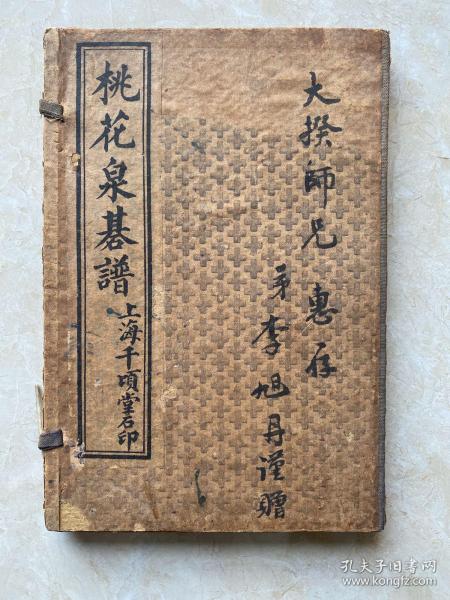 大揆師兄 惠存
弟李旭丹謹贈
桃花泉碁譜
上海千頃堂石印
孔夫子旧书网
www.kongfz.com